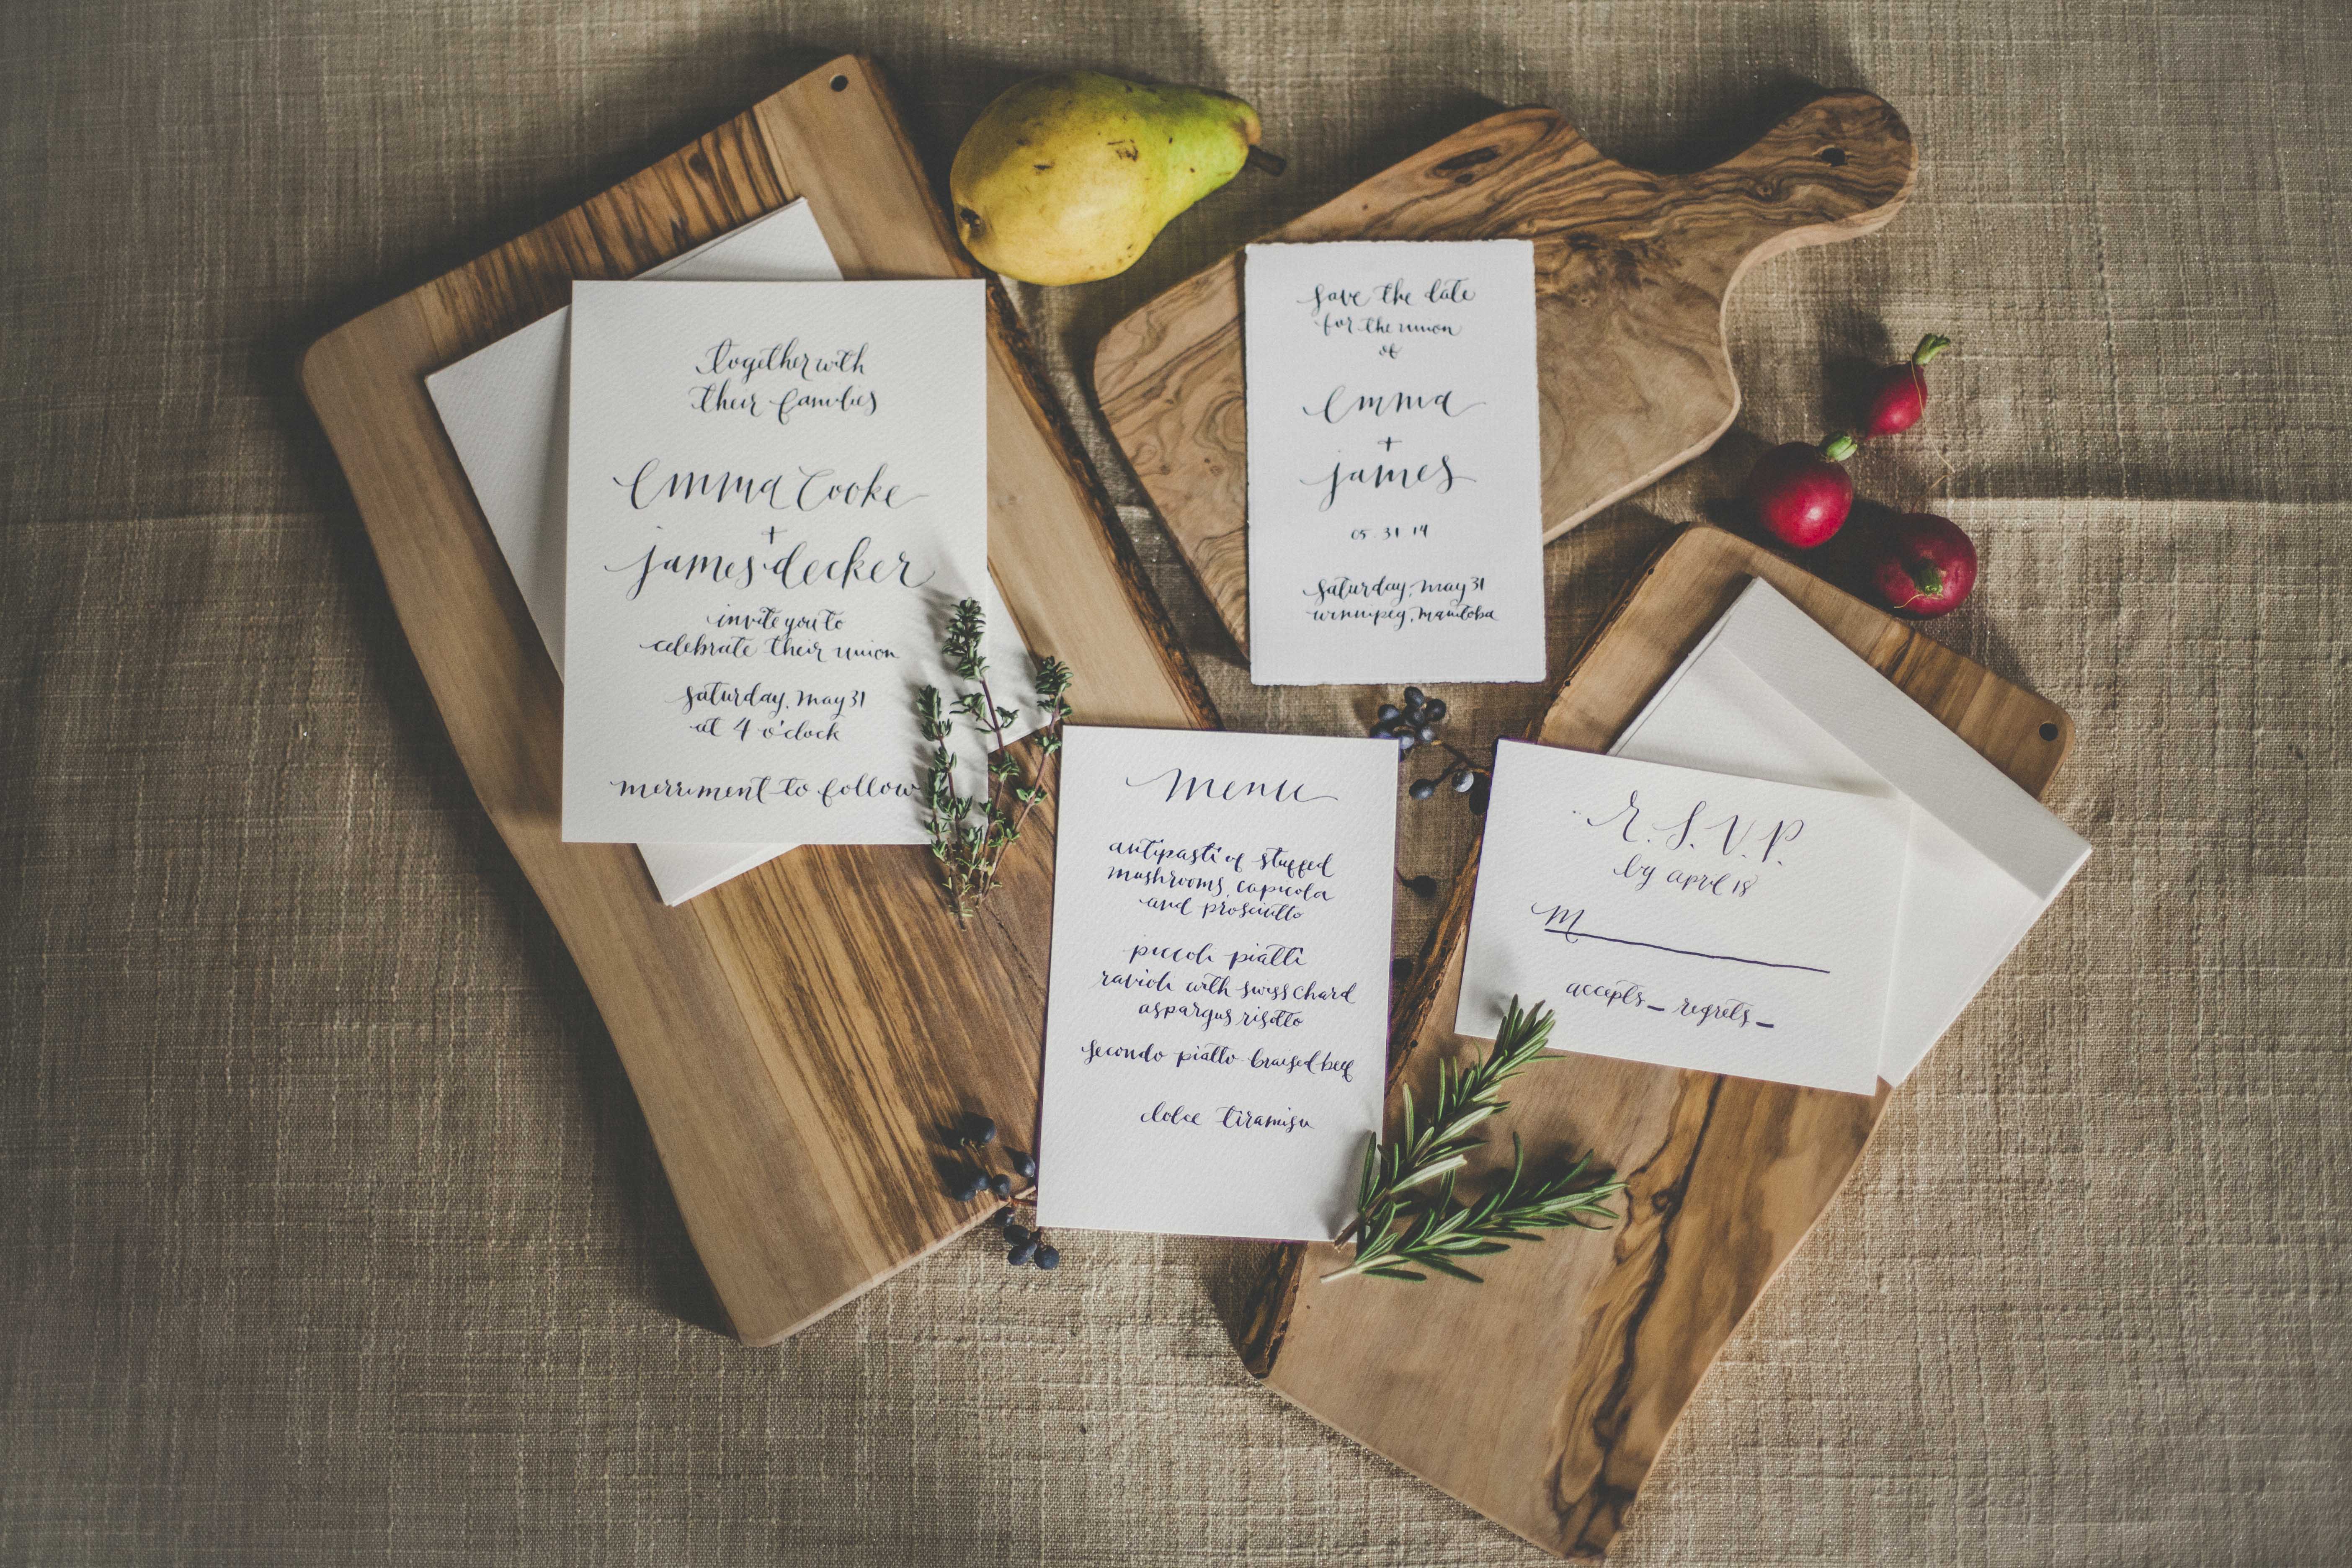 together with
their families
emma cooke
+
james decker
invite you to
celebrate their union
saturday, may 31
at 4 o'clock
merriment to follow
save the date
for the union
of
emma
+
james
05 31 14
saturday, may 31
winnipeg, manitoba
menu
antipasti of stuffed
mushrooms, capicola
and prosciutto
piccoli piatti
ravioli with swiss chard
aspargus risotto
secondo piatto braised beef
dolce tiramisu
R.S.V.P.
by april 18
M
accepts_ regrets_